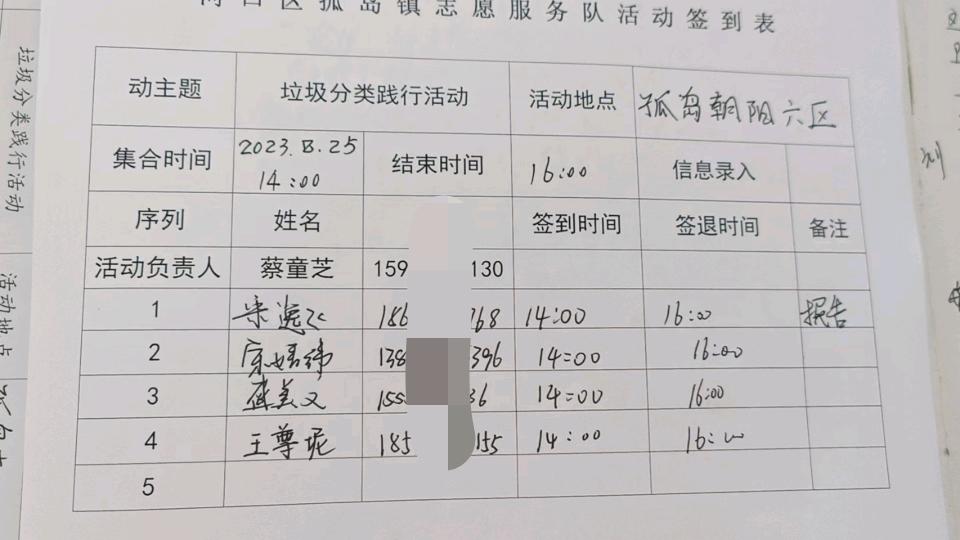 口区孤岛镇志愿服务队活动签到表
动主题 垃圾分类践行活动 活动地点 孤岛朝阳六区
集合时间 2023.8.25 14:00 结束时间 16:00 信息录入
序列 姓名 签到时间 签退时间 备注
活动负责人 蔡童芝 159 130
1 186 768 14:00 16:00 报告
2 138 396 14:00 16:00
3 155 36 14:00 16:00
4 王尊妮 185 155 14:00 16:00
5
垃圾分类践行活动
活动地点